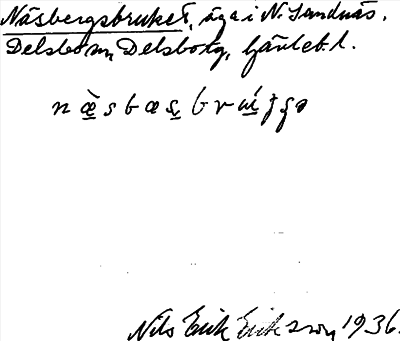 Näsbergsbruket, äga i N. Sandnäs.
Delsbo sn, Delsbo tg, Gävleb. l.
Nils Erik Eriksson 1936.